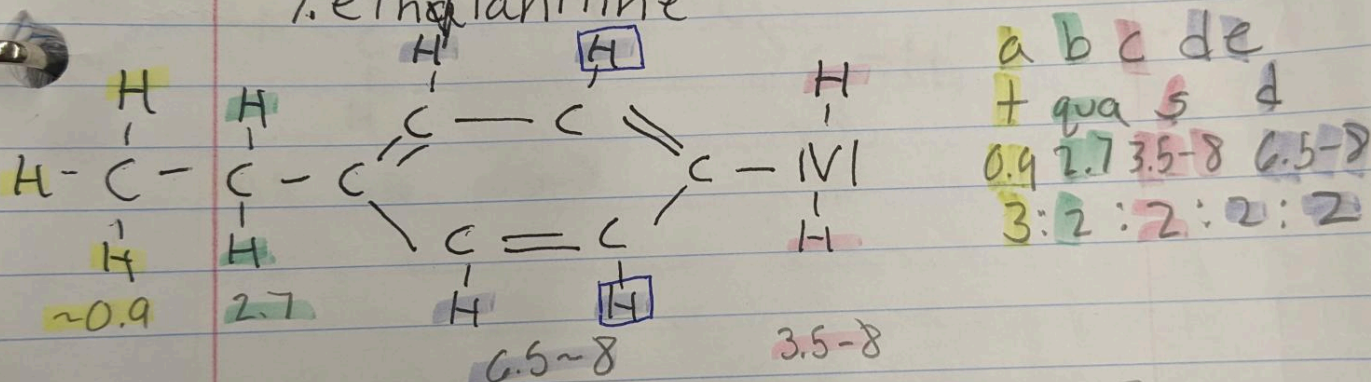 H H
H H H
C — C
H - C - C - C C - N
C = C
H H H
H H
~0.9 2.7
6.5~8 3.5-8
a b c d e
t qua s d
0.9 2.7 3.5-8 6.5-8
3 : 2 : 2 : 2 : 2